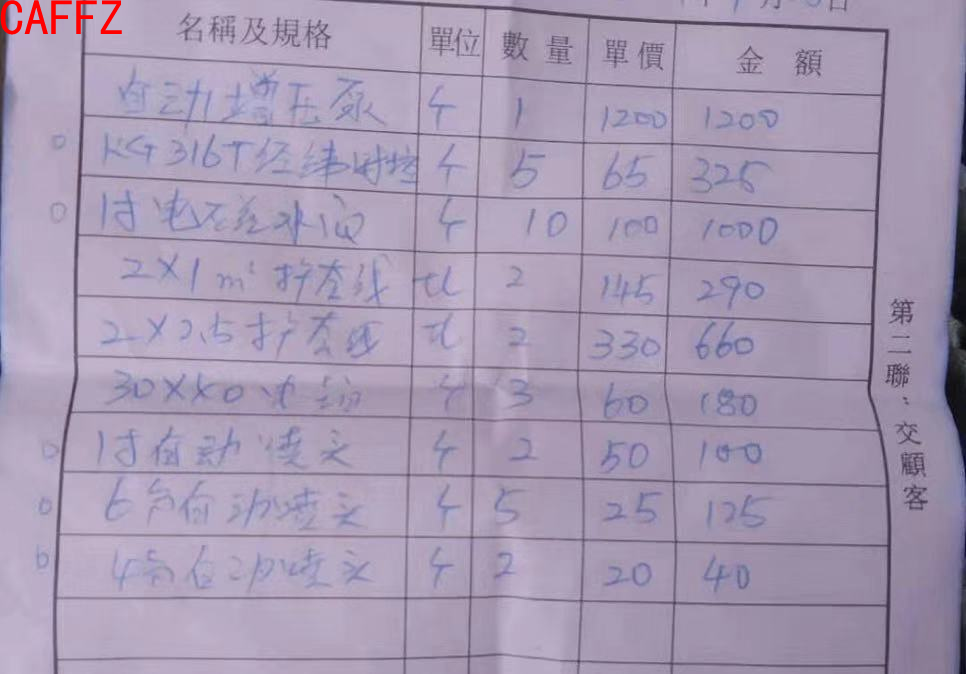 CAFFZ
月 日
名稱及規格 單位 數量 單價 金額
自动增压泵 个 1 1200 1200
KG316T经纬时控 个 5 65 325
1寸电磁水阀 个 10 100 1000
2×1m² 护套线 2 145 290
2×2.5护套线 2 330 660
30×40 个 3 60 180
1寸自动喷头 个 2 50 100
6分自动喷头 个 5 25 125
4分自动喷头 个 2 20 40
第二聯：交顧客